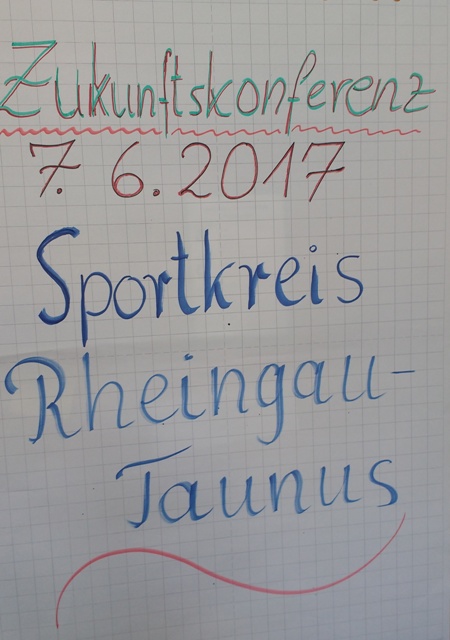 Zukunftskonferenz
7. 6. 2017
Sportkreis
Rheingau-
Taunus